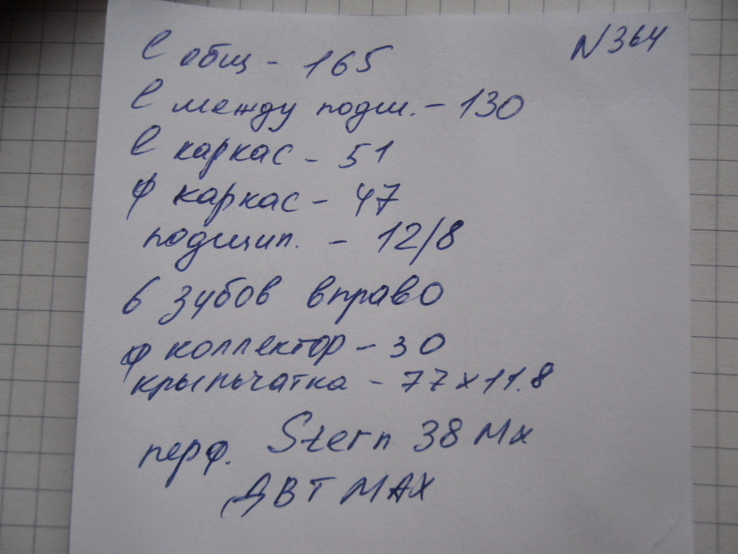 N364
l общ - 165
l между подш. - 130
l каркас - 51
ф каркас - 47
подшип. - 12/8
6 зубов вправо
ф коллектор - 30
крыльчатка - 77x11.8
перф. Stern 38 Mx
ДВТ MAX